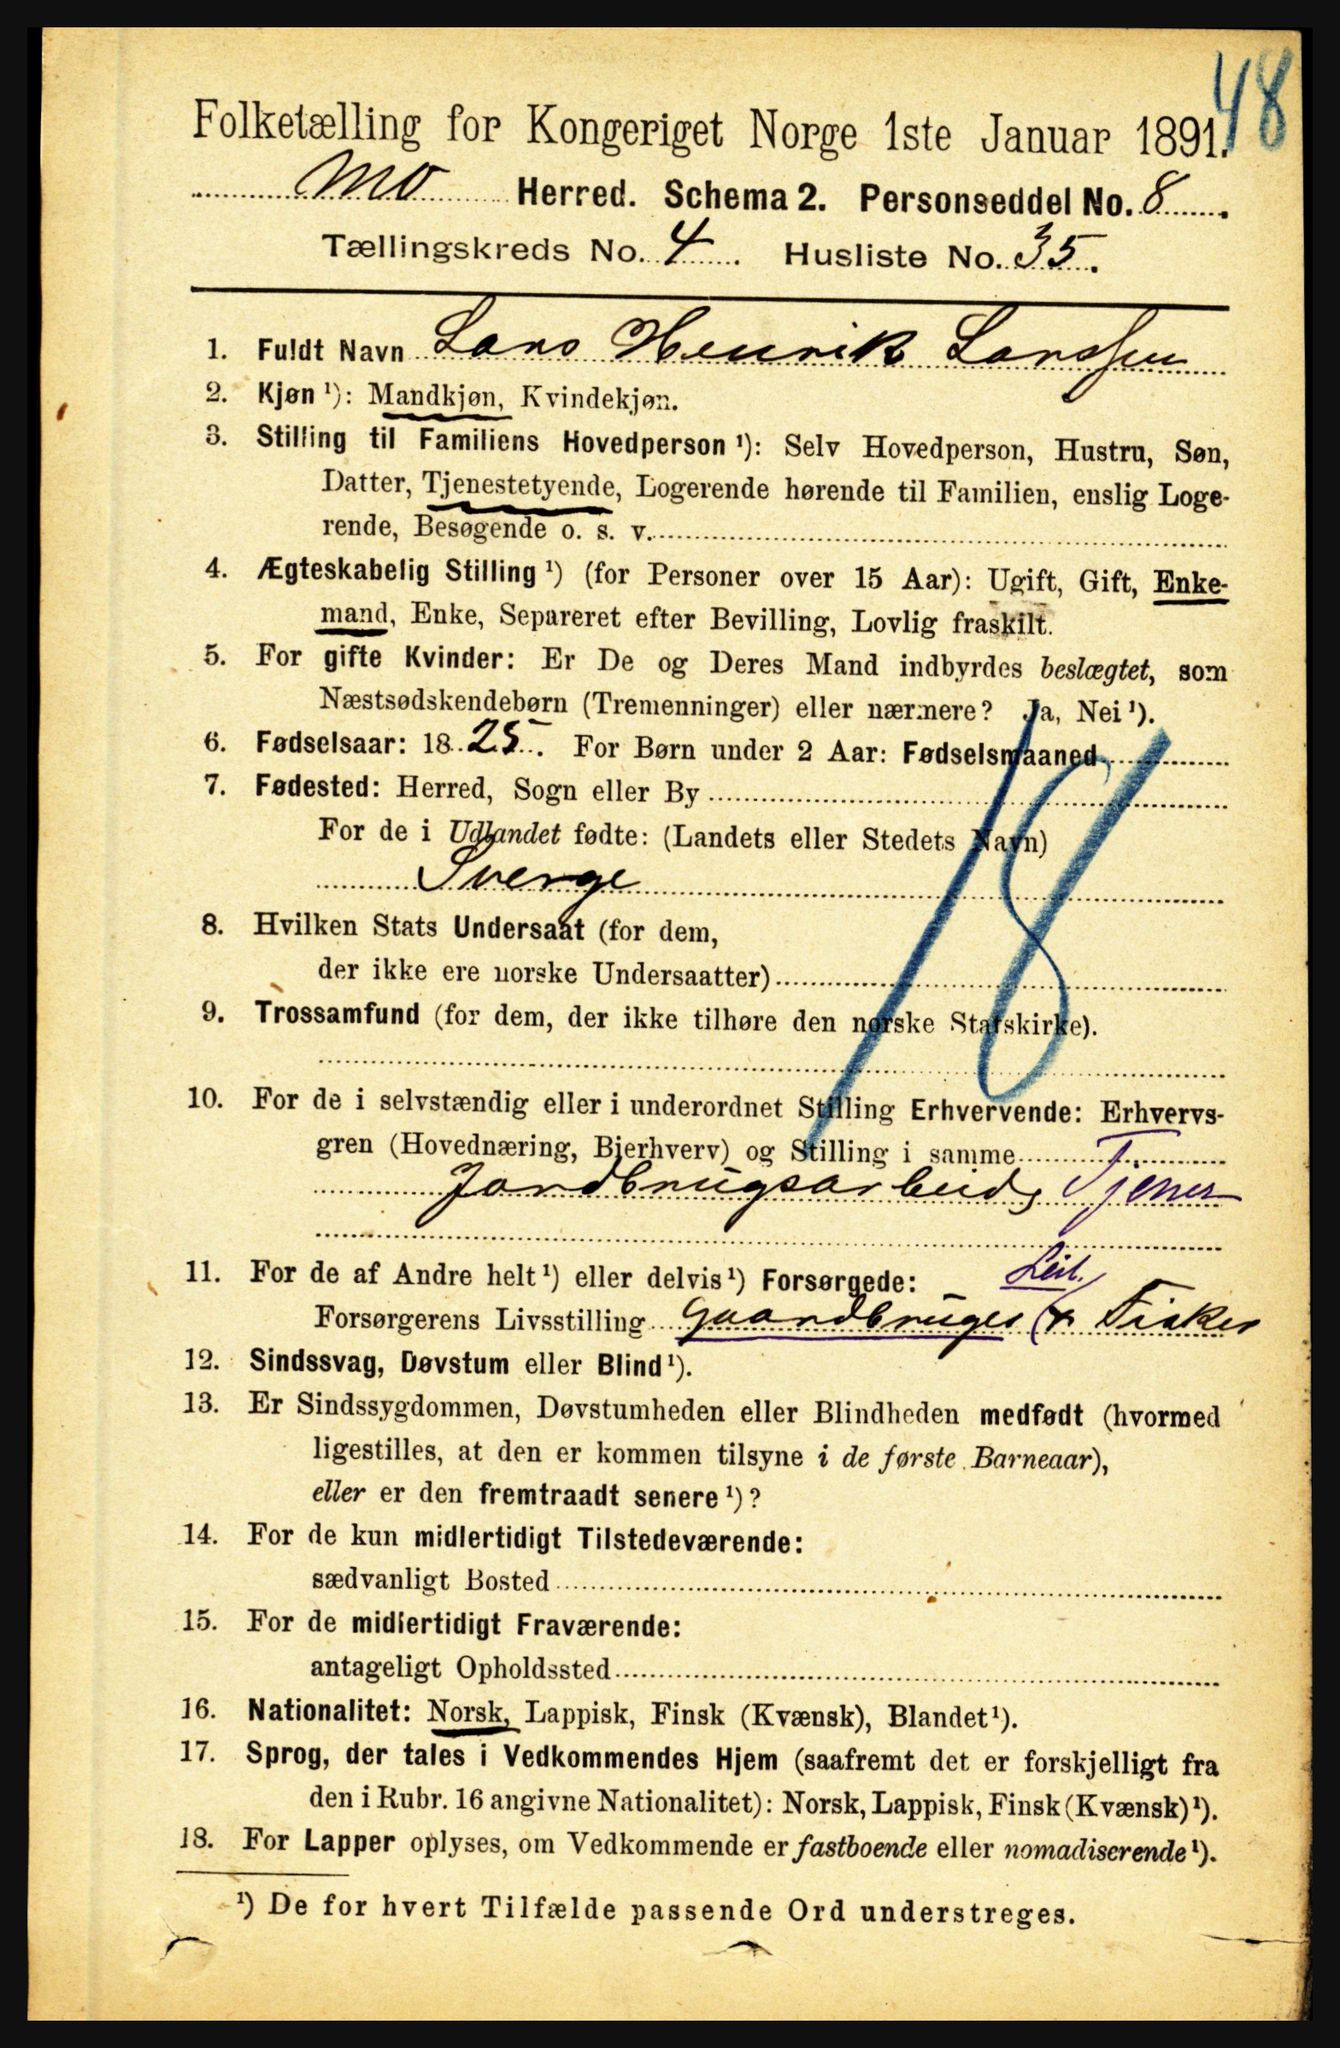 48
Folketælling for Kongeriget Norge 1ste Januar 1891.
Mo Herred. Schema 2. Personseddel No. 8.
Tællingskreds No. 4. Husliste No. 35.
1. Fuldt Navn Lars Henrik Larssen
2. Kjøn ¹): Mandkjøn, Kvindekjøn.
3. Stilling til Familiens Hovedperson ¹): Selv Hovedperson, Hustru, Søn,
Datter, Tjenestetyende, Logerende hørende til Familien, enslig Loge-
rende, Besøgende o. s. v.
4. Ægteskabelig Stilling ¹) (for Personer over 15 Aar): Ugift, Gift, Enke-
mand, Enke, Separeret efter Bevilling, Lovlig fraskilt.
5. For gifte Kvinder: Er De og Deres Mand indbyrdes beslægtet, som
Næstsødskendebørn (Tremenninger) eller nærmere? Ja, Nei ¹).
6. Fødselsaar: 18 25. For Børn under 2 Aar: Fødselsmaaned
7. Fødested: Herred, Sogn eller By
For de i Udlandet fødte: (Landets eller Stedets Navn)
Sverge
18
8. Hvilken Stats Undersaat (for dem,
der ikke ere norske Undersaatter)
9. Trossamfund (for dem, der ikke tilhøre den norske Statskirke).
10. For de i selvstændig eller i underordnet Stilling Erhvervende: Erhvervs-
gren (Hovednæring, Bierhverv) og Stilling i samme
Jordbrugsarbeide Tjener
11. For de af Andre helt ¹) eller delvis ¹) Forsørgede:
Leil.
Forsørgerens Livsstilling Gaardbruger & Fisker
12. Sindssvag, Døvstum eller Blind ¹).
13. Er Sindssygdommen, Døvstumheden eller Blindheden medfødt (hvormed
ligestilles, at den er kommen tilsyne i de første Barneaar),
eller er den fremtraadt senere ¹)?
14. For de kun midlertidigt Tilstedeværende:
sædvanligt Bosted
15. For de midlertidigt Fraværende:
antageligt Opholdssted
16. Nationalitet: Norsk, Lappisk, Finsk (Kvænsk), Blandet ¹).
17. Sprog, der tales i Vedkommendes Hjem (saafremt det er forskjelligt fra
den i Rubr. 16 angivne Nationalitet): Norsk, Lappisk, Finsk (Kvænsk) ¹).
18. For Lapper oplyses, om Vedkommende er fastboende eller nomadiserende ¹).
¹) De for hvert Tilfælde passende Ord understreges.